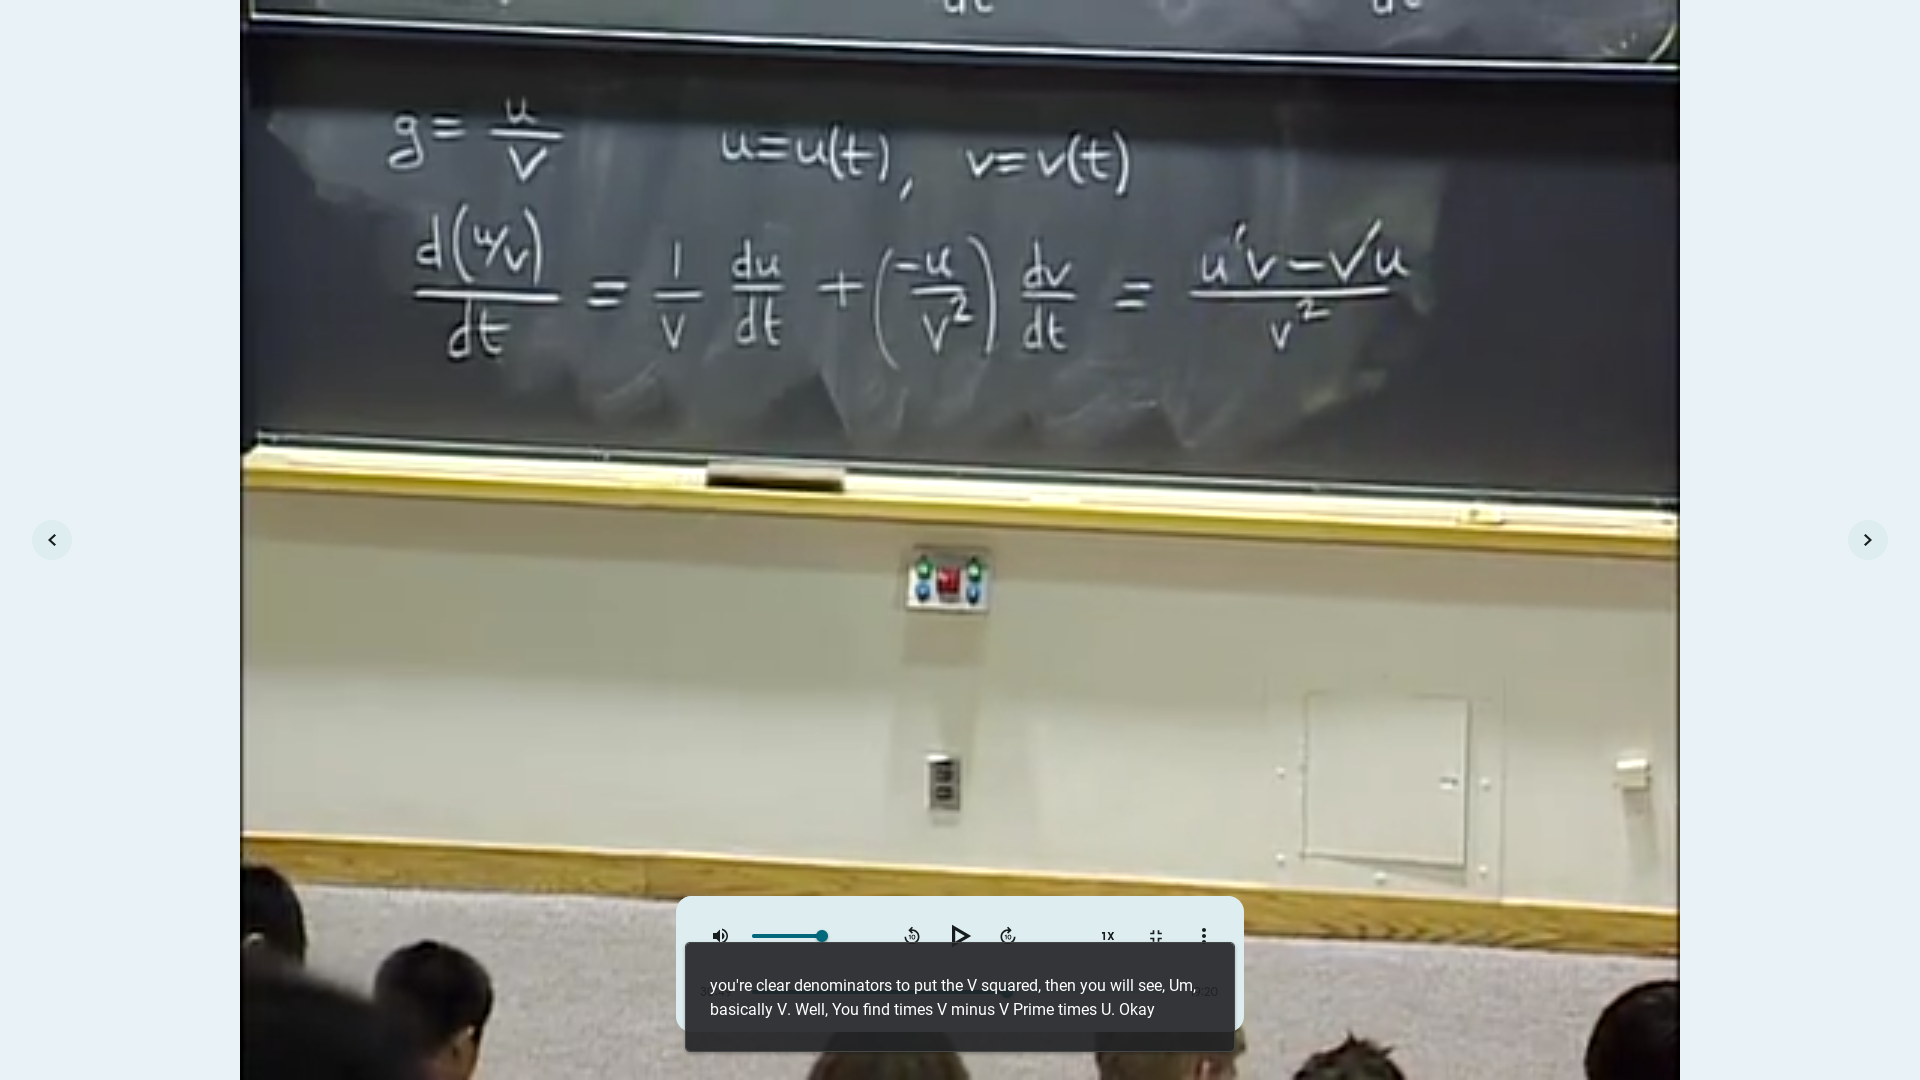 g = u/v    u = u(t), v = v(t)
d(u/v)/dt = 1/v du/dt + (-u/v²) dv/dt = (u'v - v'u)/v²
1X
you're clear denominators to put the V squared, then you will see, Um,
basically V. Well, You find times V minus V Prime times U. Okay